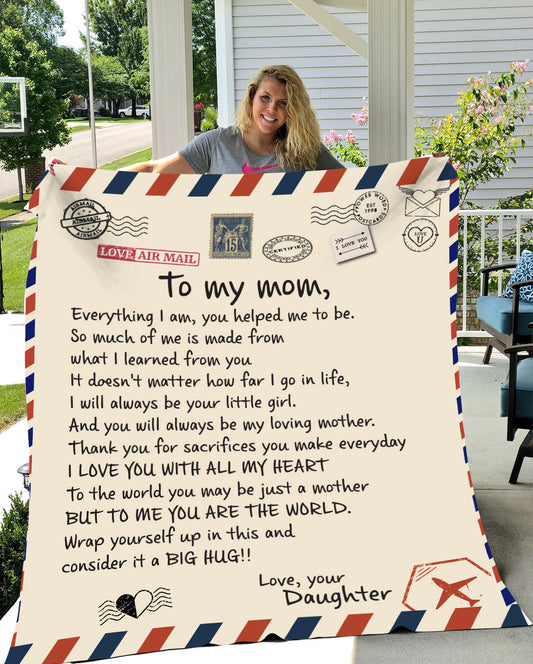 AIRMAIL
AIRMAIL
AIRMAIL
LOVE AIR MAIL
15
CERTIFIED
POWER WORD
EST
1998
POSTCARDS
I LOVE YOU
LOVE
U
To my mom,
Everything I am, you helped me to be.
So much of me is made from
what I learned from you
It doesn't matter how far I go in life,
I will always be your little girl.
And you will always be my loving mother.
Thank you for sacrifices you make everyday
I LOVE YOU WITH ALL MY HEART
To the world you may be just a mother
BUT TO ME YOU ARE THE WORLD.
Wrap yourself up in this and
consider it a BIG HUG!!
Love, your
Daughter